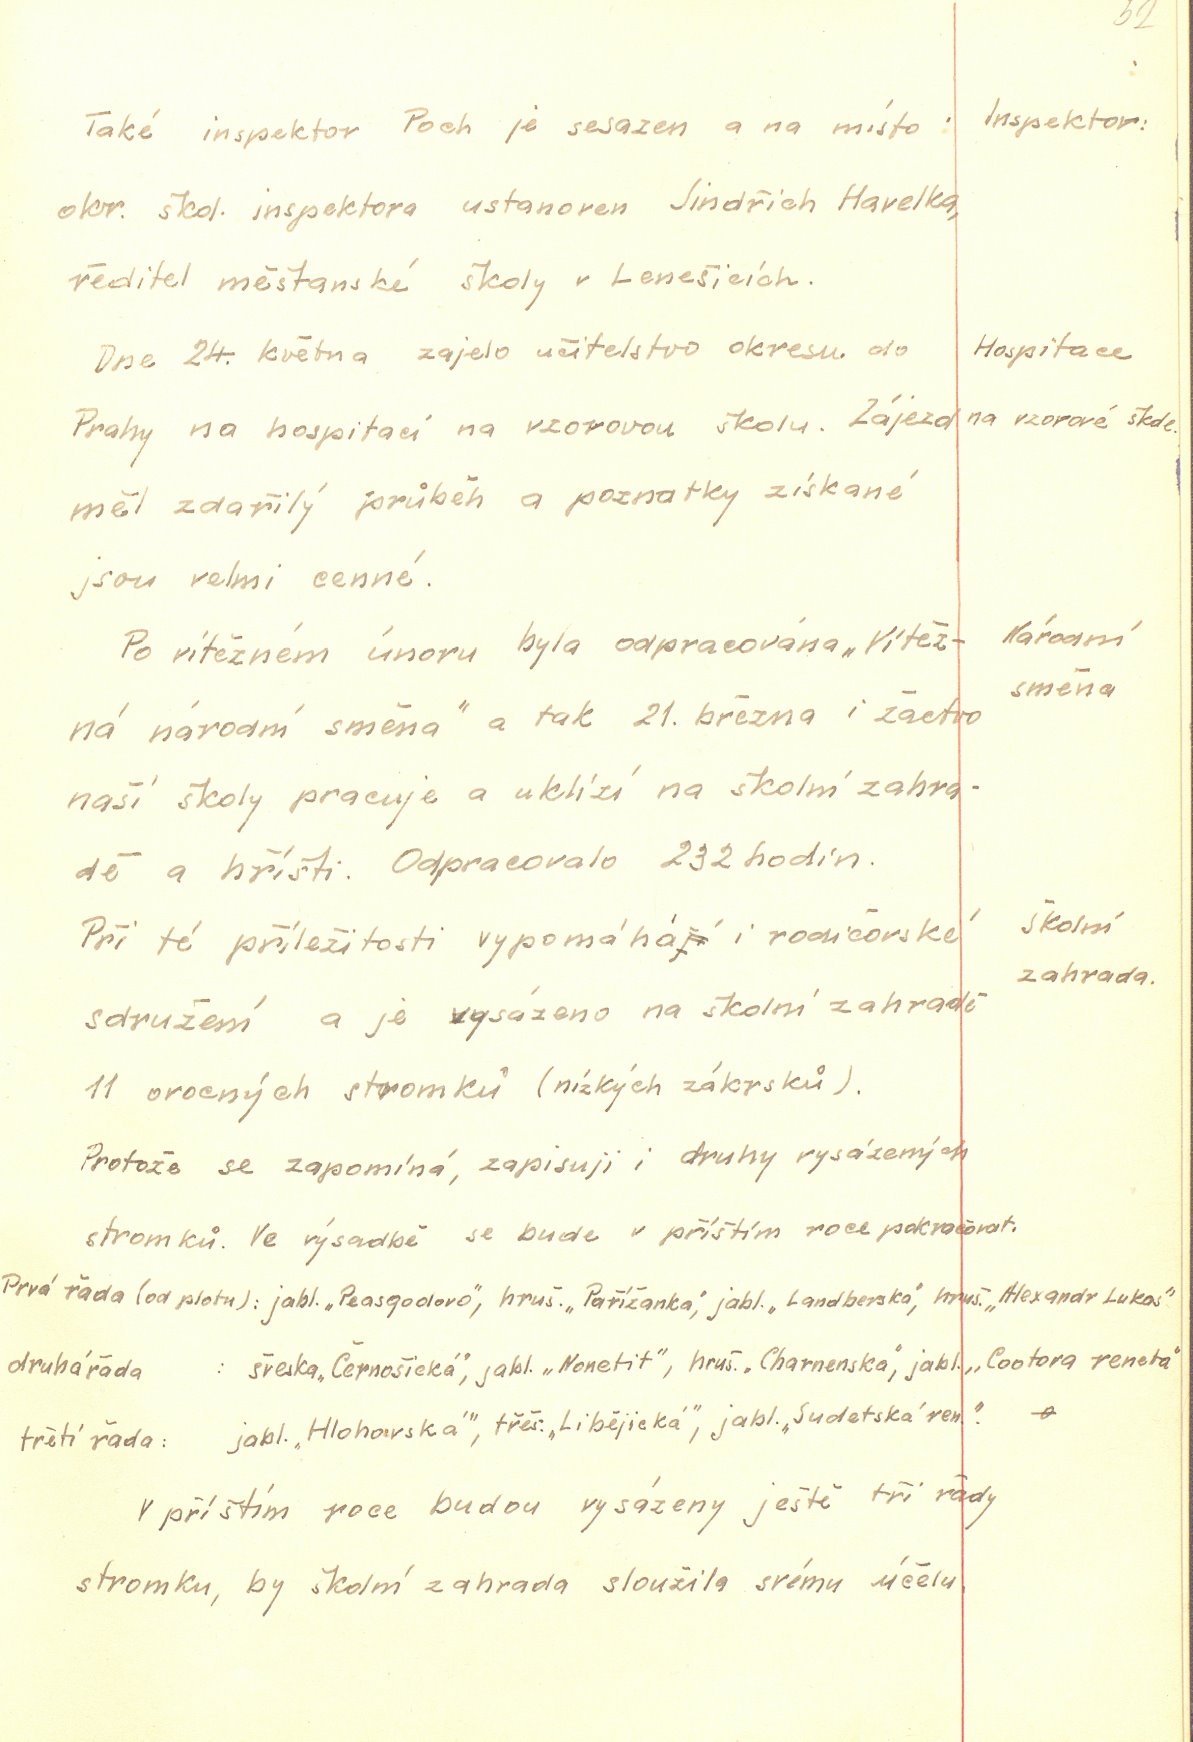 52
Také inspektor Poch je sesazen a na místo
Inspektor:
okr. škol. inspektora ustanoven Jindřich Havelka,
ředitel měšťanské školy v Lenešicích.
Dne 24. května zajelo učitelstvo okresu do
Hospitace
Prahy na hospitaci na vzorovou školu. Zájezd
na vzorové škole.
měl zdařilý průběh a poznatky získané
jsou velmi cenné.
Po vítězném únoru byla odpracována „Vítěz-
Národní
směna
ná národní směna" a tak 21. března i žáctvo
naší školy pracuje a uklízí na školní zahra-
dě a hřišti. Odpracovalo 232 hodin.
Při té příležitosti vypomáhá i rodičovské
Školní
zahrada.
sdružení a je vysázeno na školní zahradě
11 ovocných stromků (nízkých zákrsků).
Protože se zapomíná, zapisuji i druhy vysázených
stromků. Ve výsadbě se bude v příštím roce pokračovat.
Prvá řada (od plotu): jabl. „Peasgodovo", hruš. „Pařížanka", jabl. „Landberská", hruš. „Alexandr Lukas"
druhá řada : šveska „Černošická", jabl. „Nonetit", hruš. „Charnenská", jabl. „Cootova reneta"
třetí řada: jabl. „Hlohovská", třeš. „Libějická", jabl. „Sudetská ren."
V příštím roce budou vysázeny ještě tři řady
stromku, by školní zahrada sloužila svému účelu.